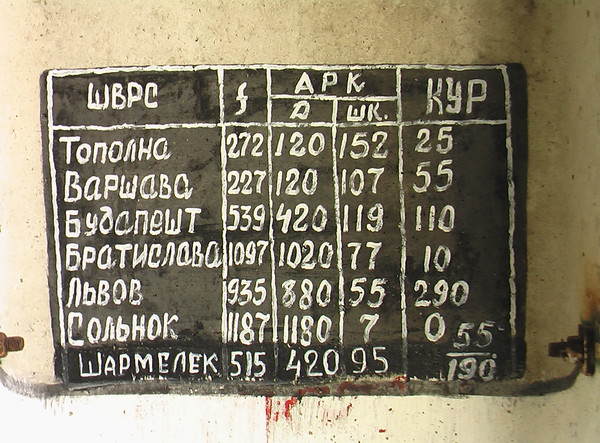 ШВРС f АРК КУР
Д ШК.
ТОПОЛНА 272 120 152 25
ВАРШАВА 227 120 107 55
БУДАПЕШТ 539 420 119 110
БРАТИСЛАВА 1097 1020 77 10
ЛЬВОВ 935 880 55 290
СОЛЬНОК 1187 1180 7 0
ШАРМЕЛЕК 515 420 95 55/190